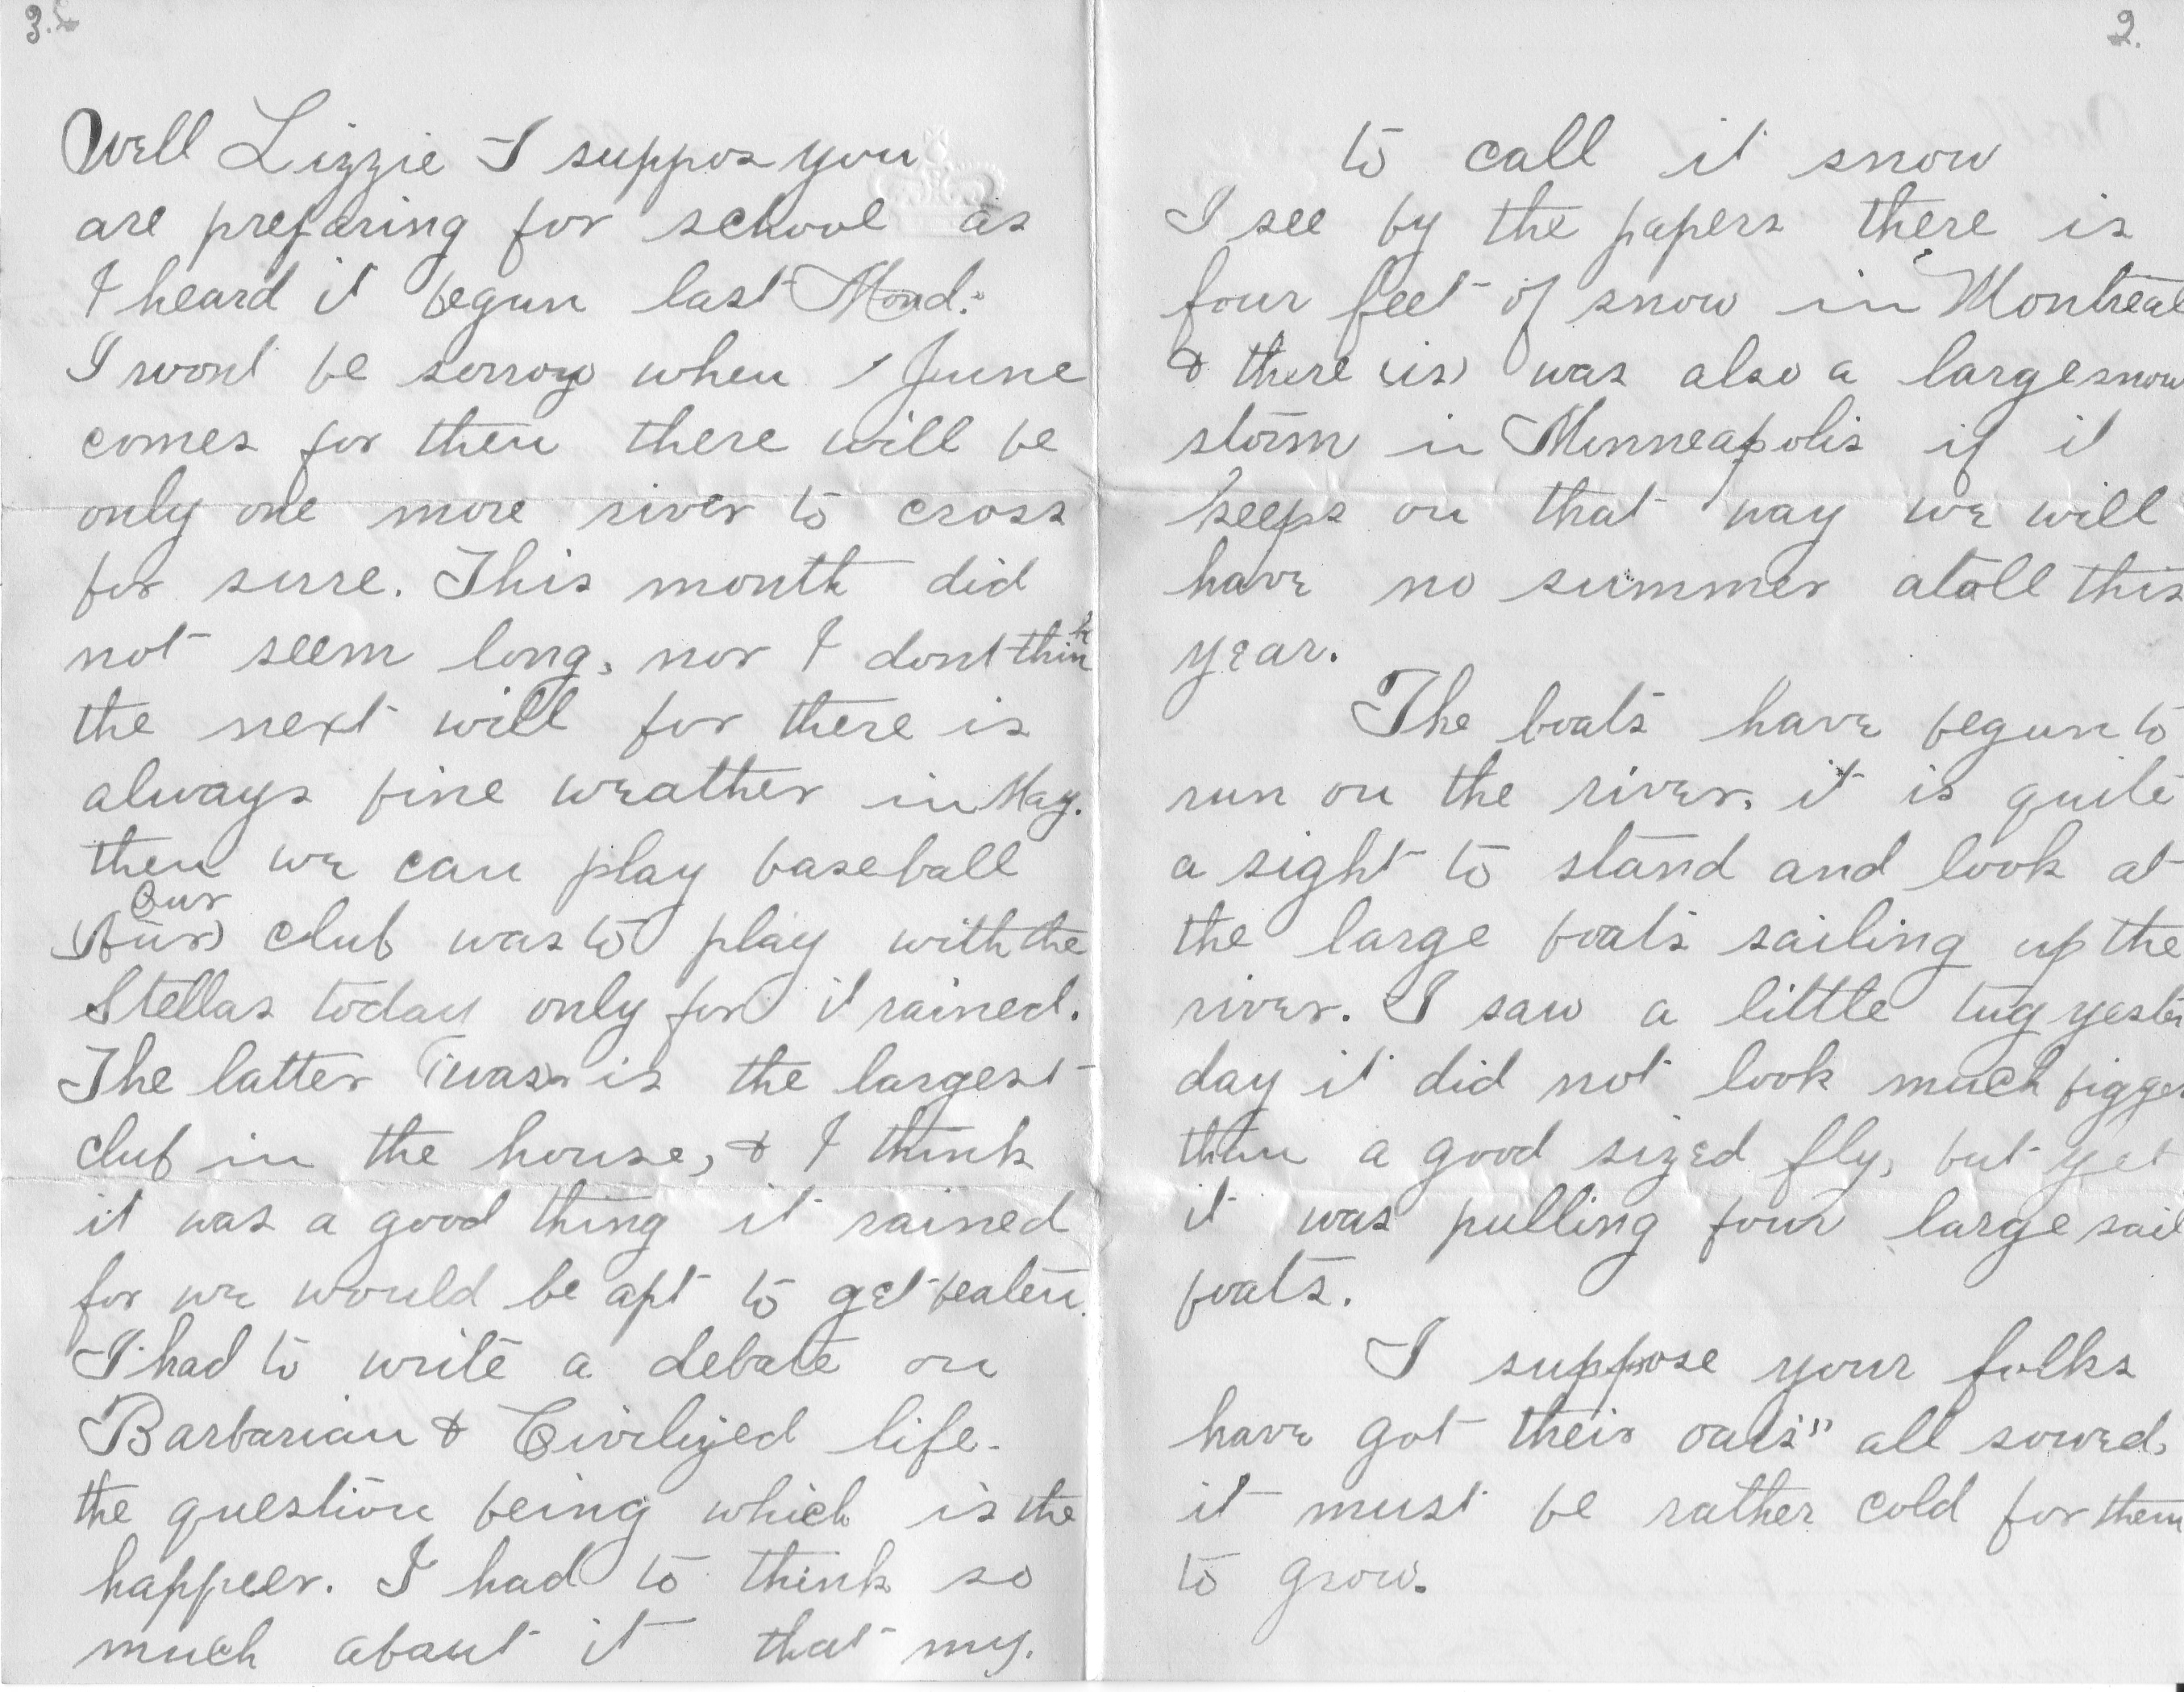 2.
to call it snow
I see by the papers there is
four feet of snow in Montreal
& there (is) was also a large snow
storm in Minneapolis if it
keeps on that way we will
have no summer atall this
year.
The boats have begun to
run on the river, it is quite
a sight to stand and look at
the large boats sailing up the
river. I saw a little tug yester
day it did not look much bigger
than a good sized fly, but yet
it was pulling four large sail
boats.
I suppose your folks
have got their oats" all sowed,
it must be rather cold for them
to grow.
3.
Well Lizzie I suppos you
are prefaring for school as
I heard it begun last Mond.
I wont be sorrow when June
comes for then there will be
only one more river to cross
for sure. This month did
not seem long, nor I dont think
the next will for there is
always fine weather in May.
then we can play baseball
Our
club was to play with the
Stellas today only for it rained.
The latter (was) is the largest
club in the house, & I think
it was a good thing it rained
for we would be apt to get beaten.
I had to write a debate on
Barbarian & Civilized life.
the question being which is the
happeer. I had to think so
much about it that my.